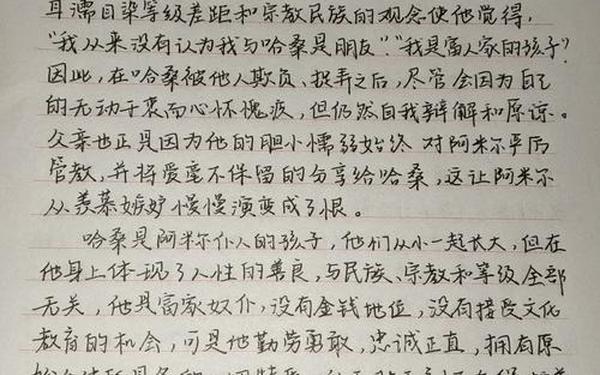 耳濡目染等级差距和宗教民族的观念使他觉得,
“我从来没有认为我与哈桑是朋友”.“我是富人家的孩子”.
因此,在哈桑被他人欺负、捉弄之后,尽管会因为自己
的无动于衷而心怀愧疚,但仍然自我辩解和原谅。
父亲也正是因为他的胆小懦弱始终对阿米尔严厉
管教,并将爱毫不保留的分享给哈桑,这让阿米尔
从羡慕嫉妒慢慢演变成了恨。
哈桑是阿米尔仆人的孩子,他们从小一起长大,但在
他身上体现了人性的善良,与民族、宗教和等级全部
无关,他是富家奴仆,没有金钱地位,没有接受文化
教育的机会,可是他勤劳勇敢,忠诚正直,拥有原